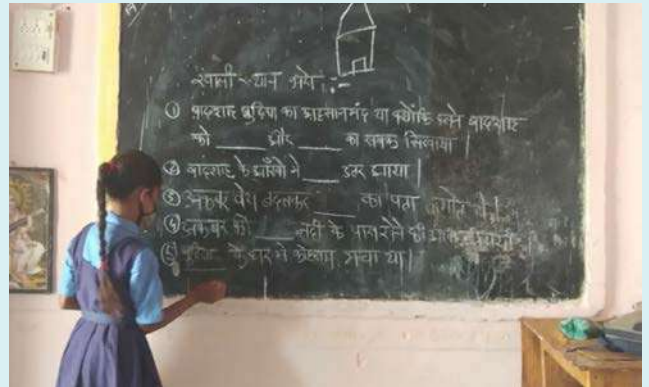 खाली स्थान भरो :-
① बादशाह बुढ़िया का अहसानमंद था क्योंकि उसने बादशाह
को ____ और ____ का सबक सिखाया |
② बादशाह के आँखों में ____ उतर आया |
③ अकबर वेश बदलकर ____ का पता
④ अकबर को ____ नदी के पास रोने की
⑤ के बारे में मचा था |